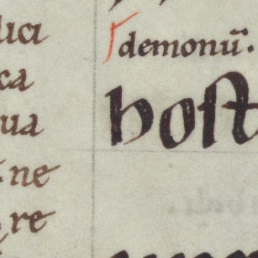 lica
ca
ua
ne
re
demonū.
hoſt